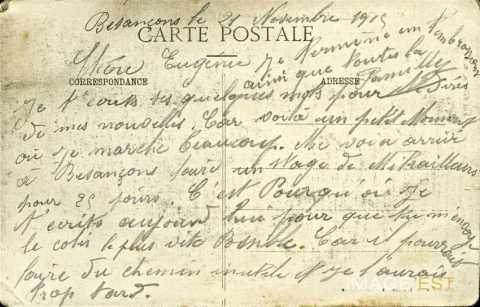 Besançons le 21 Novembre 1915
CARTE POSTALE
Chère Eugénie Je termine en t'embrassant
ainsi que toutes la famille
CORRESPONDANCE
ADRESSE
Je t'ecrits ses quelques mots pour Dires
de mes nouvelles. Car voilà un petit Moment
où je marche beaucoup. Me voila arrivé
à Besançons faire un stage de Mitrailleurs
pour 25 jours. C'est Pourqu'oi je
t'ecrits aujourd hui pour que tu m'envoye
le colis le plus vite Posible. Car il pourrait
faire du chemin inutile et je l'aurais
trop tard.
IMAGE'EST